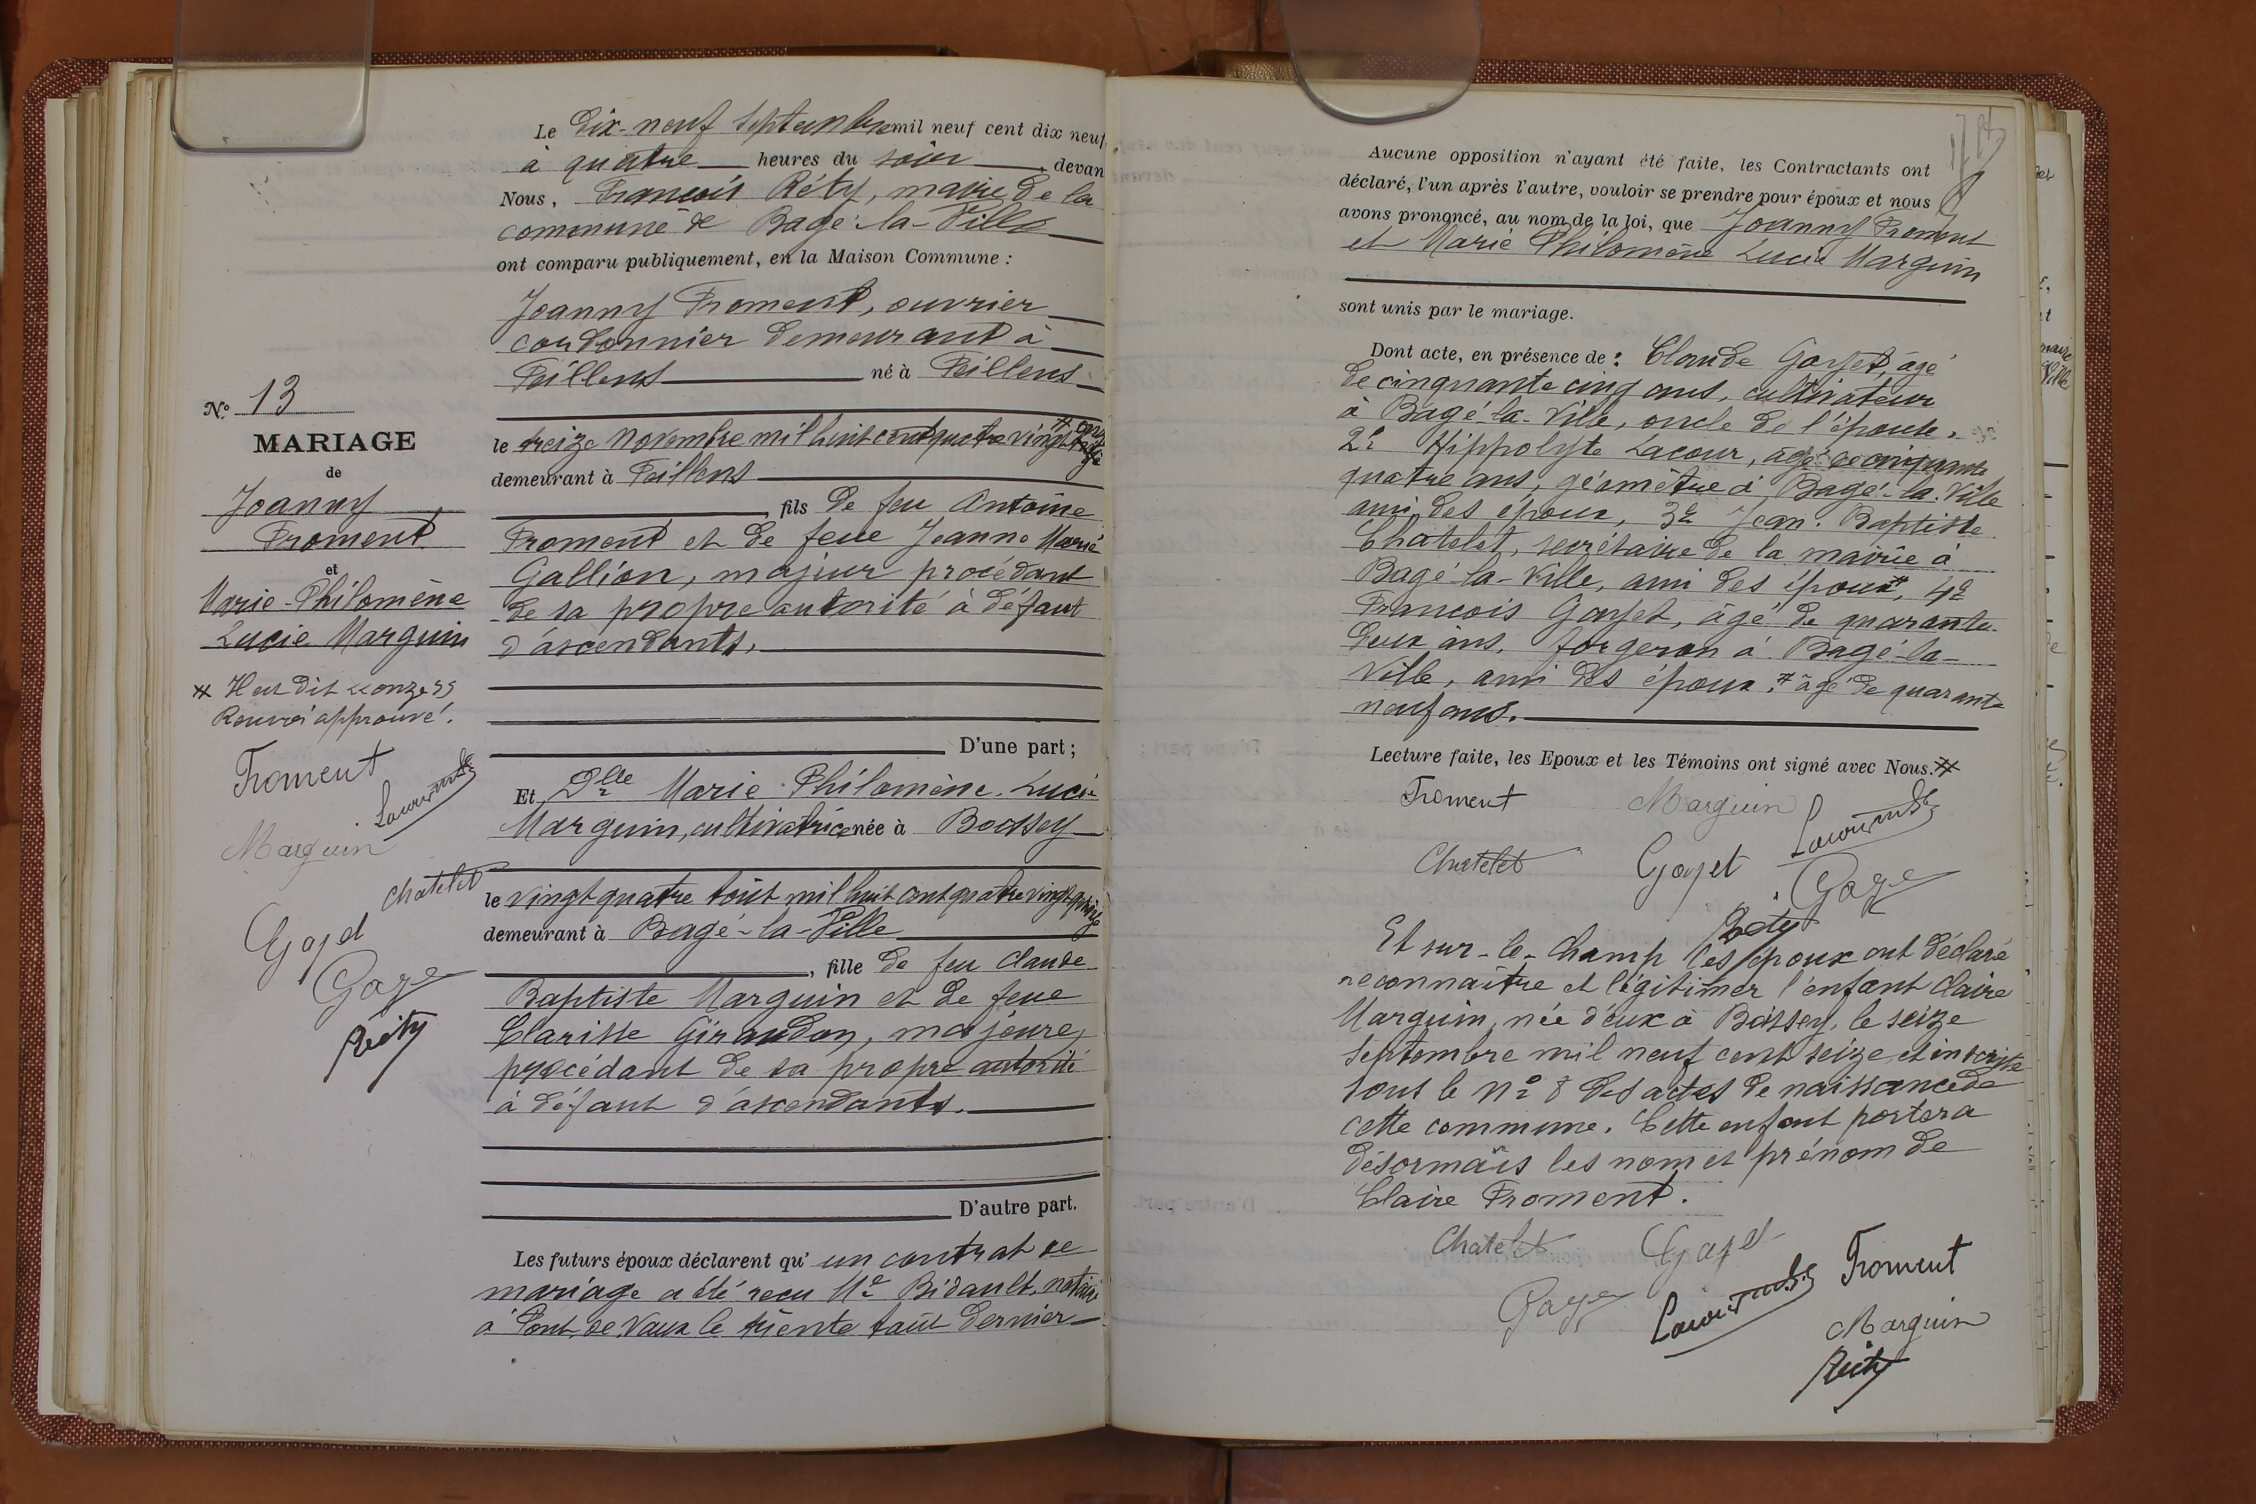 Le Dix-neuf Septembre mil neuf cent dix neuf
à quatre heures du soir, devan
Nous, François Réty, maire de la
commune de Bagé-la-Ville
ont comparu publiquement, en la Maison Commune :
Joanny Froment, ouvrier
cordonnier demeurant à
Feillens né à Feillens
le treize Novembre mil huit cent quatre vingt
demeurant à Feillens
, fils de feu Antoine
Froment et de feue Jeanne Marie
Gallion, majeur procédant
de sa propre autorité à défaut
d'ascendants.
D'une part ;
Et Dlle Marie-Philomène-Lucie
Marguin, cultivatrice née à Boissey
le vingt quatre août mil huit cent quatre vingt
demeurant à Bagé-la-Ville
, fille de feu Claude
Baptiste Marguin et de feue
Clarisse Giraudon, majeure,
procédant de sa propre autorité
à défaut d'ascendants.
D'autre part.
Les futurs époux déclarent qu' un contrat de
mariage a été reçu Me Bidault, notaire
à Pont de Vaux le trente août dernier
N° 13
MARIAGE
de
Joanny
Froment
et
Marie-Philomène
Lucie Marguin
# Il est dit "onze"
Renvoi approuvé.
Froment
Marguin
Chatelet
Réty
Aucune opposition n'ayant été faite, les Contractants ont
déclaré, l'un après l'autre, vouloir se prendre pour époux et nous
avons prononcé, au nom de la loi, que Joanny Froment
et Marie Philomène Lucie Marguin
sont unis par le mariage.
Dont acte, en présence de : Claude Gayet, âgé
de cinquante cinq ans, cultivateur
à Bagé-la-Ville, oncle de l'épouse,
2° Hippolyte Lacour, âgé de cinquante
quatre ans, géomètre à Bagé-la-Ville
ami des époux, 3° Jean-Baptiste
Chatelet, secrétaire de la mairie à
Bagé-la-Ville, ami des époux#, 4°
François Gayet, âgé de quarante-
deux ans, forgeron à Bagé-la-
Ville, ami des époux. # âgé de quarante
neuf ans.
Lecture faite, les Epoux et les Témoins ont signé avec Nous. #
Froment Marguin
Chatelet Gayet
Réty
Et sur-le-champ les époux ont déclaré
reconnaître et légitimer l'enfant Claire
Marguin, née d'eux à Boissey, le seize
Septembre mil neuf cent seize et inscrite
sous le n° 8 des actes de naissance de
cette commune. Cette enfant portera
désormais les nom et prénom de
Claire Froment.
Chatelet Gayet
Froment
Marguin
Réty